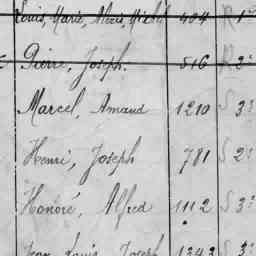 Louis, Marie, Alexis, Michel 404 R 1
Pierre, Joseph. 516 R 2
Marcel, Amand 1210 S 3
Henri, Joseph 781 S 2
Honoré, Alfred 1112 S 3
Jean Louis Joseph 1343 S 3